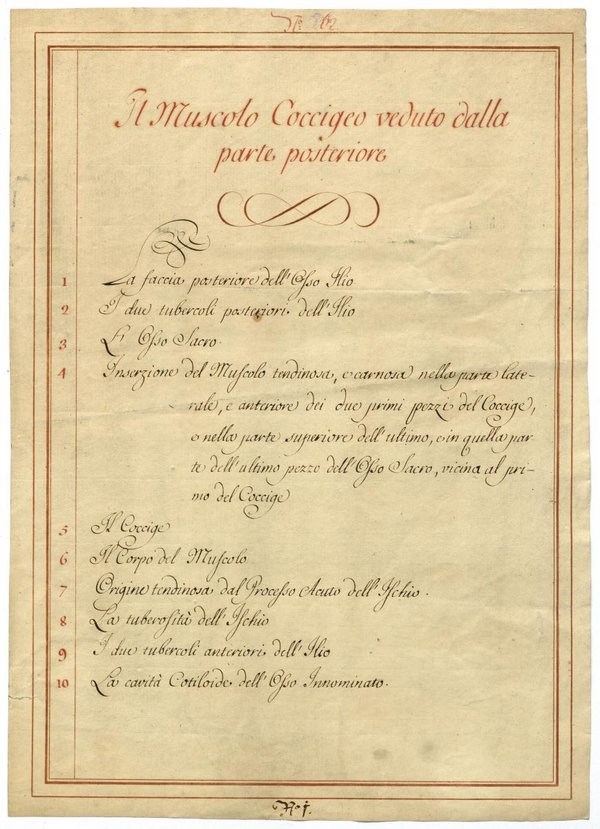 Il Muscolo Coccigeo veduto dalla
parte posteriore
1 La faccia posteriore dell'Osso Ilio
2 I due tubercoli posteriori dell'Ilio
3 L'Osso Sacro.
4 Inserzione del Muscolo tendinosa, e carnosa nella parte late-
rale, e anteriore dei due primi pezzi del Coccige,
e nella parte superiore dell'ultimo, e in quella par
te dell'ultimo pezzo dell'Osso Sacro, vicina al pri-
mo del Coccige
5 Il Coccige
6 Il Corpo del Muscolo
7 Origine tendinosa dal Processo Acuto dell'Ischio.
8 La tuberosità dell'Ischio
9 I due tubercoli anteriori dell'Ilio
10 La cavità Cotiloide dell'Osso Innominato.